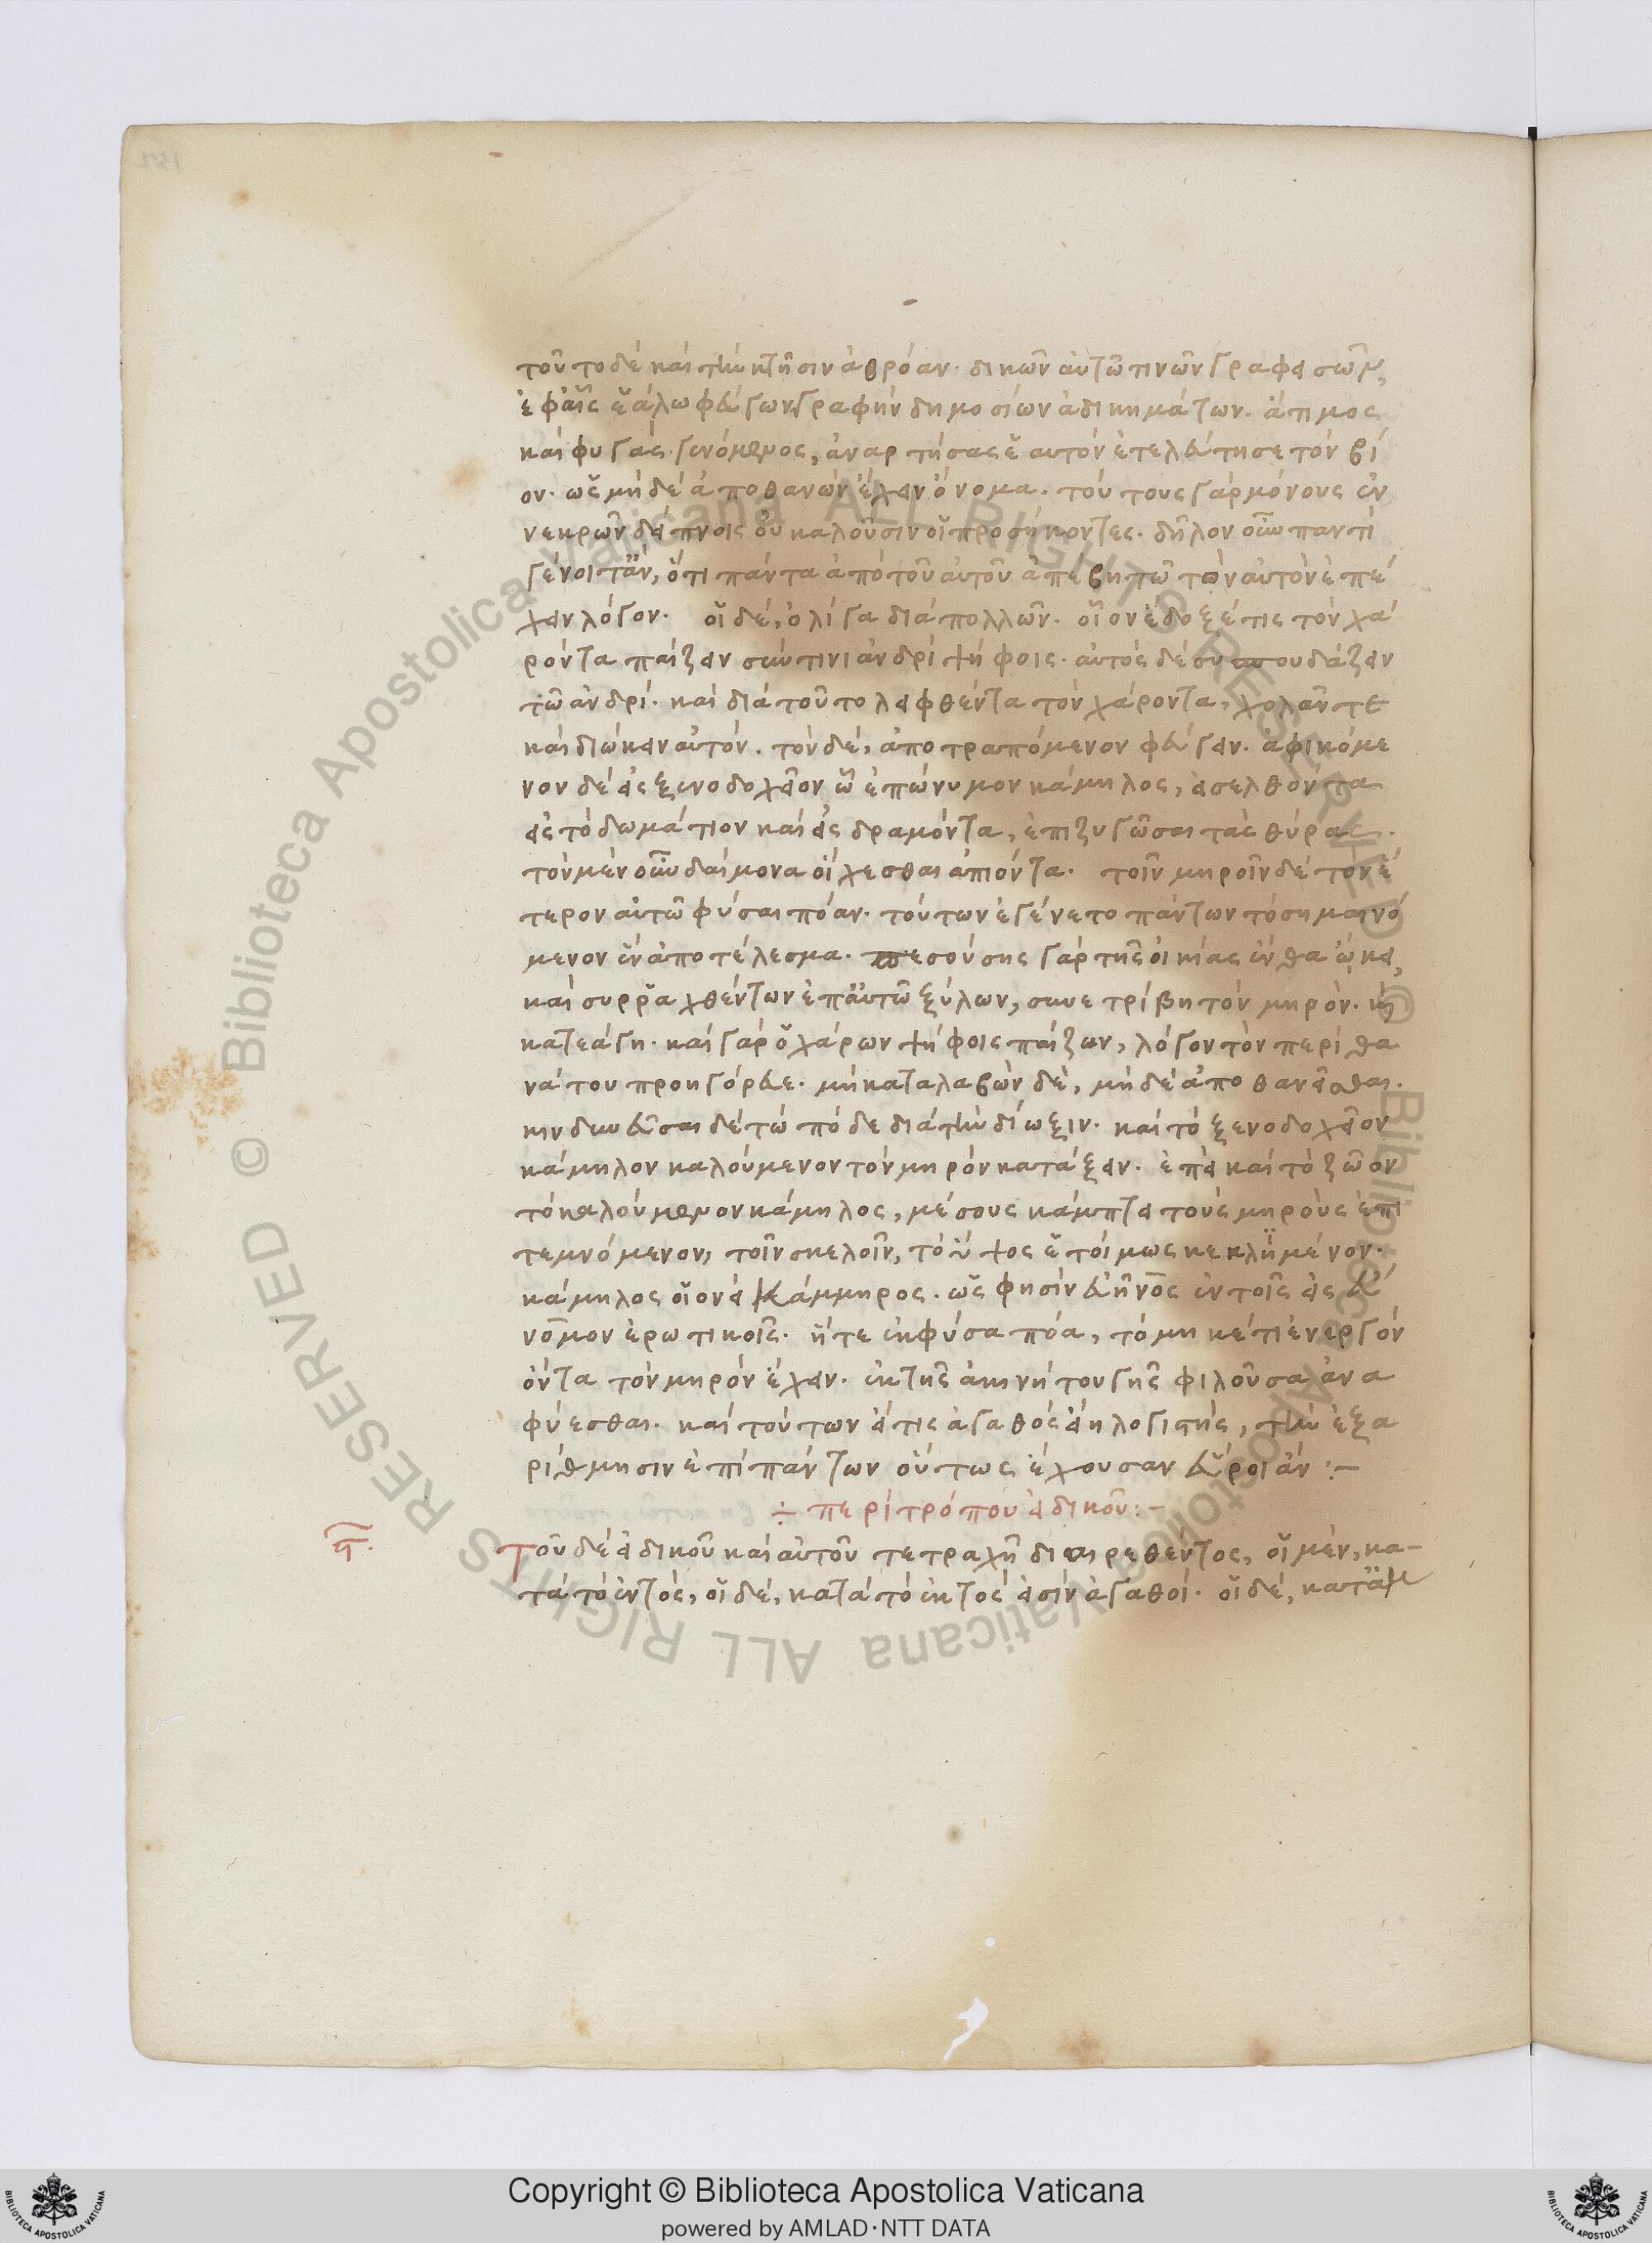 τοῦτο δὲ καὶ τὴν κτῆσιν ἀθρόαν· δικῶν αὐτῶ τινῶν γραφεισῶν,
ἐφαῖς ἑάλω φεύγων γραφὴν δημοσίων ἀδικημάτων. ἄτιμος
καὶ φυγὰς γενόμενος, ἀναρτήσας ἑαυτὸν ἐτελεύτησε τὸν βί
ον· ὡς μὴ δὲ ἀποθανὼν ἔχειν ὄνομα. τούτους γὰρ μόνους ἐν
νεκρῶν δείπνοις οὐ καλοῦσιν οἱ προσήκοντες. δῆλον οὖν παντὶ
γένοιτ' ἄν, ὅτι πάντα ἀπὸ τοῦ αὐτοῦ ἀπέβη πῶ τὸν αὐτὸν ἐπέ
χειν λόγον. οἱ δέ, ὀλίγα διὰ πολλῶν. οἷον ἔδοξέ τις τὸν χά
ροντα παίζειν σύν τινι ἀνδρὶ ψήφοις. αὐτὸς δὲ συσπουδάζειν
τῶ ἀνδρί. καὶ διὰ τοῦτο λειφθέντα τὸν χάροντα, χολᾶν τε
καὶ διώκειν αὐτόν. τὸν δέ, ἀποτραπόμενον φεύγειν. ἀφικόμε
νον δὲ εἰς ξενοδοχεῖον ὧ ἐπώνυμον κάμηλος, εἰσελθόντα
εἰς τὸ δωμάτιον καὶ εἰσδραμόντα, ἐπιζυγῶσαι τὰς θύρας.
τὸν μὲν οὖν δαίμονα οἴχεσθαι ἀπιόντα. τοῖν μηροῖν δὲ τὸν ἕ
τερον αὐτῶ φύσαι πόαν. τούτων ἐγένετο πάντων τὸ σημαινό
μενον ἓν ἀποτέλεσμα. πεσούσης γὰρ τῆς οἰκίας ἔνθα ᾤκει,
καὶ συρραχθέντων ἐπ' αὐτῶ ξύλων, συνετρίβη τὸν μηρόν. καὶ
κατεάγη. καὶ γὰρ ὁ χάρων ψήφοις παίζων, λόγον τὸν περὶ θα
νάτου προηγόρευε. μὴ καταλαβὼν δέ, μὴ δὲ ἀποθανεῖσθαι.
κινδυνεῦσαι δὲ τὼ πόδε διὰ τὴν δίωξιν. καὶ τὸ ξενοδοχεῖον
κάμηλον καλούμενον τὸν μηρὸν κατάξειν. ἐπεὶ καὶ τὸ ζῶον
τὸ καλούμενον κάμηλος, μέσους κάμπτει τοὺς μηροὺς ἐπι
τεμνόμενον, τοῖν σκελοῖν, τὸ ὕψος ἑτοίμως κεκλημένον.
κάμηλος οἱονεὶ κάμμηρος. ὥς φησιν εὔηνος ἐν τοῖς εἰς εὔ
νομον ἐρωτικοῖς. ἥ τε ἐκφύσα πόα, τὸ μηκέτι ἐνεργὸν
ὄντα τὸν μηρὸν ἔχειν. ἐκ τῆς ἀκινήτου γῆς φιλοῦσα ἀνα
φύεσθαι. καὶ τούτων εἴ τις ἀγαθὸς εἴη λογιστής, τὴν ἐξα
ρίθμησιν ἐπὶ πάντων οὕτως ἔχουσαν εὕροι ἄν :–
÷ περὶ τρόπου εἰδικοῦ :–
η̄. Τοῦ δὲ εἰδικοῦ καὶ αὐτοῦ τετραχῆ διαιρεθέντος, οἱ μέν, κα–
τὰ τὸ ἐντός, οἱ δέ, κατὰ τὸ ἐκτός εἰσὶν ἀγαθοί. οἱ δέ, κατ' ἄμ
© Biblioteca Apostolica Vaticana ALL RIGHTS RESERVED
© Biblioteca Apostolica Vaticana ALL RIGHTS RESERVED
Copyright © Biblioteca Apostolica Vaticana
powered by AMLAD·NTT DATA
BIBLIOTECA APOSTOLICA VATICANA
BIBLIOTECA APOSTOLICA VATICANA